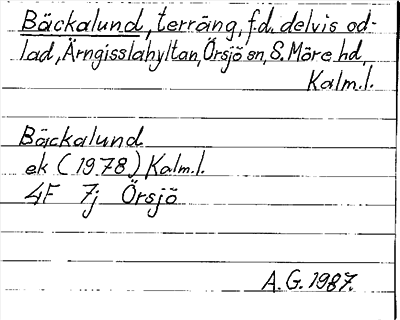 Bäckalund, terräng, f.d. delvis od-
lad, Ärngisslahyltan, Örsjö sn, S. Möre hd,
Kalm.l.
Bäckalund
ek (1978) Kalm.l.
4F 7j Örsjö
A.G. 1987.